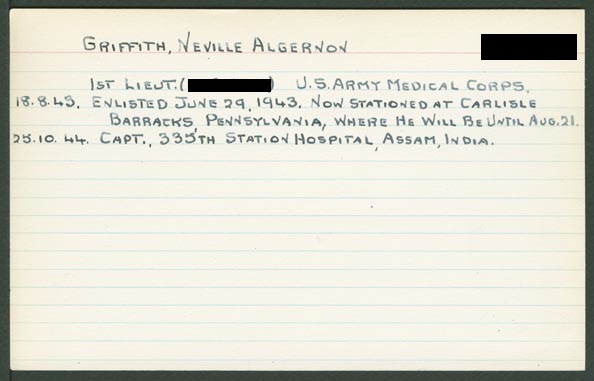 GRIFFITH, NEVILLE ALGERNON
1ST LIEUT. ( ) U.S. ARMY MEDICAL CORPS.
18.8.43. ENLISTED JUNE 29, 1943. NOW STATIONED AT CARLISLE
BARRACKS, PENNSYLVANIA, WHERE HE WILL BE UNTIL AUG. 21.
25.10.44. CAPT., 335TH STATION HOSPITAL, ASSAM, INDIA.